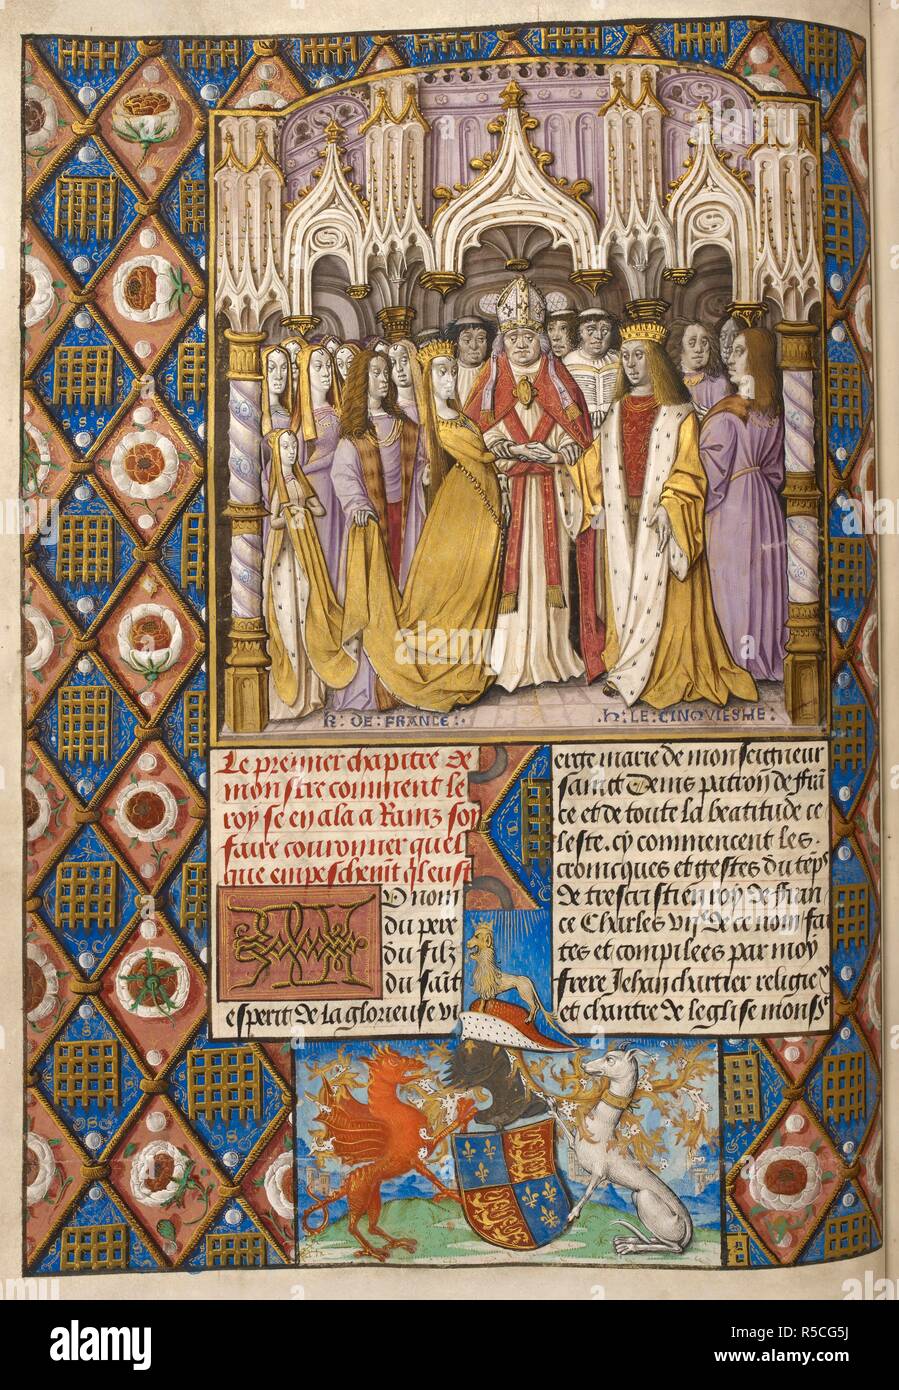 K : DE : FRANCE :
H : LE : CINQUIESME :
Le premier chapitre de
monstre comment le
roy se en ala a Rainz soy
faire couronner quel
que empeschemt ql eust
U nom
du pere
du filz
du saīt
esperit de la glorieuse vi
erge marie de monseigneur
sainct Denis patron de frā
ce et de toute la beatitude ce
leste. cy commencent les
cronicques et gestes du teps
de trescristien roy de fran
ce Charles vije de ce nom fai
ctes et compilees par moy
frere Jehan chartier religieux
et chantre de leglise monsr
alamy
alamy
Image ID: R5CG5J
www.alamy.com